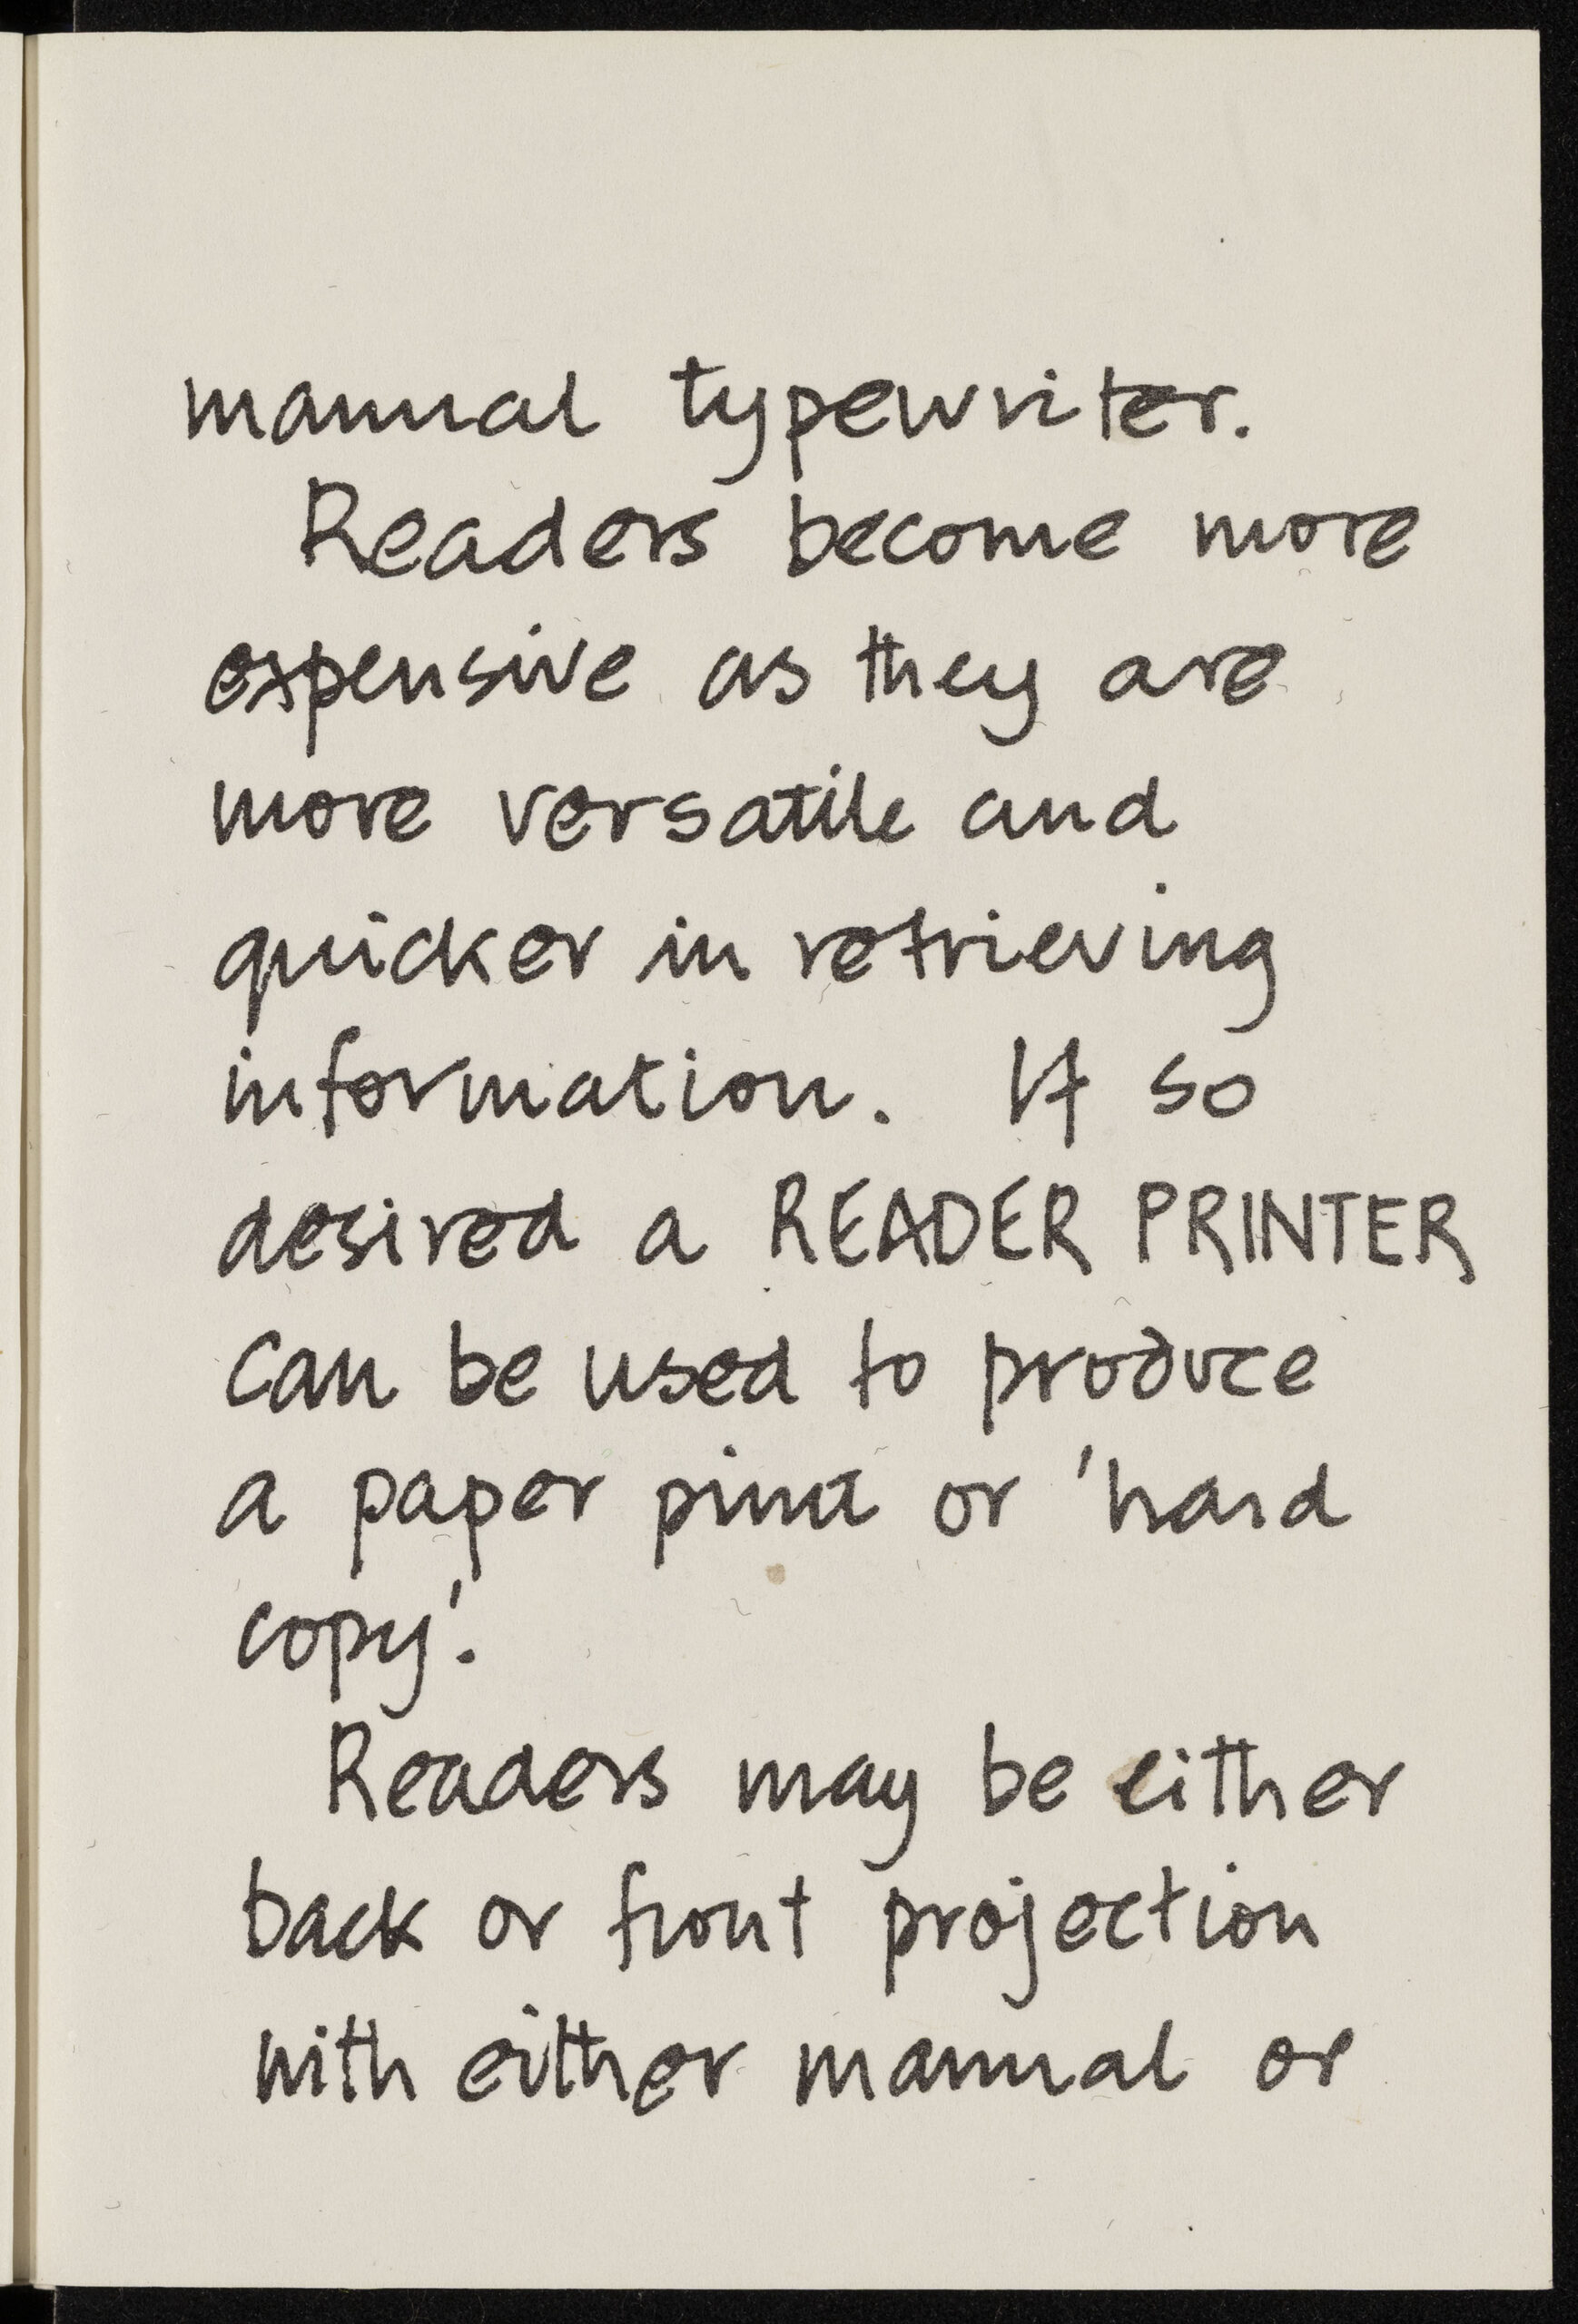 manual typewriter.
Readers become more
expensive as they are
more versatile and
quicker in retrieving
information. If so
desired a READER PRINTER
can be used to produce
a paper print or 'hard
copy'.
Readers may be either
back or front projection
with either manual or